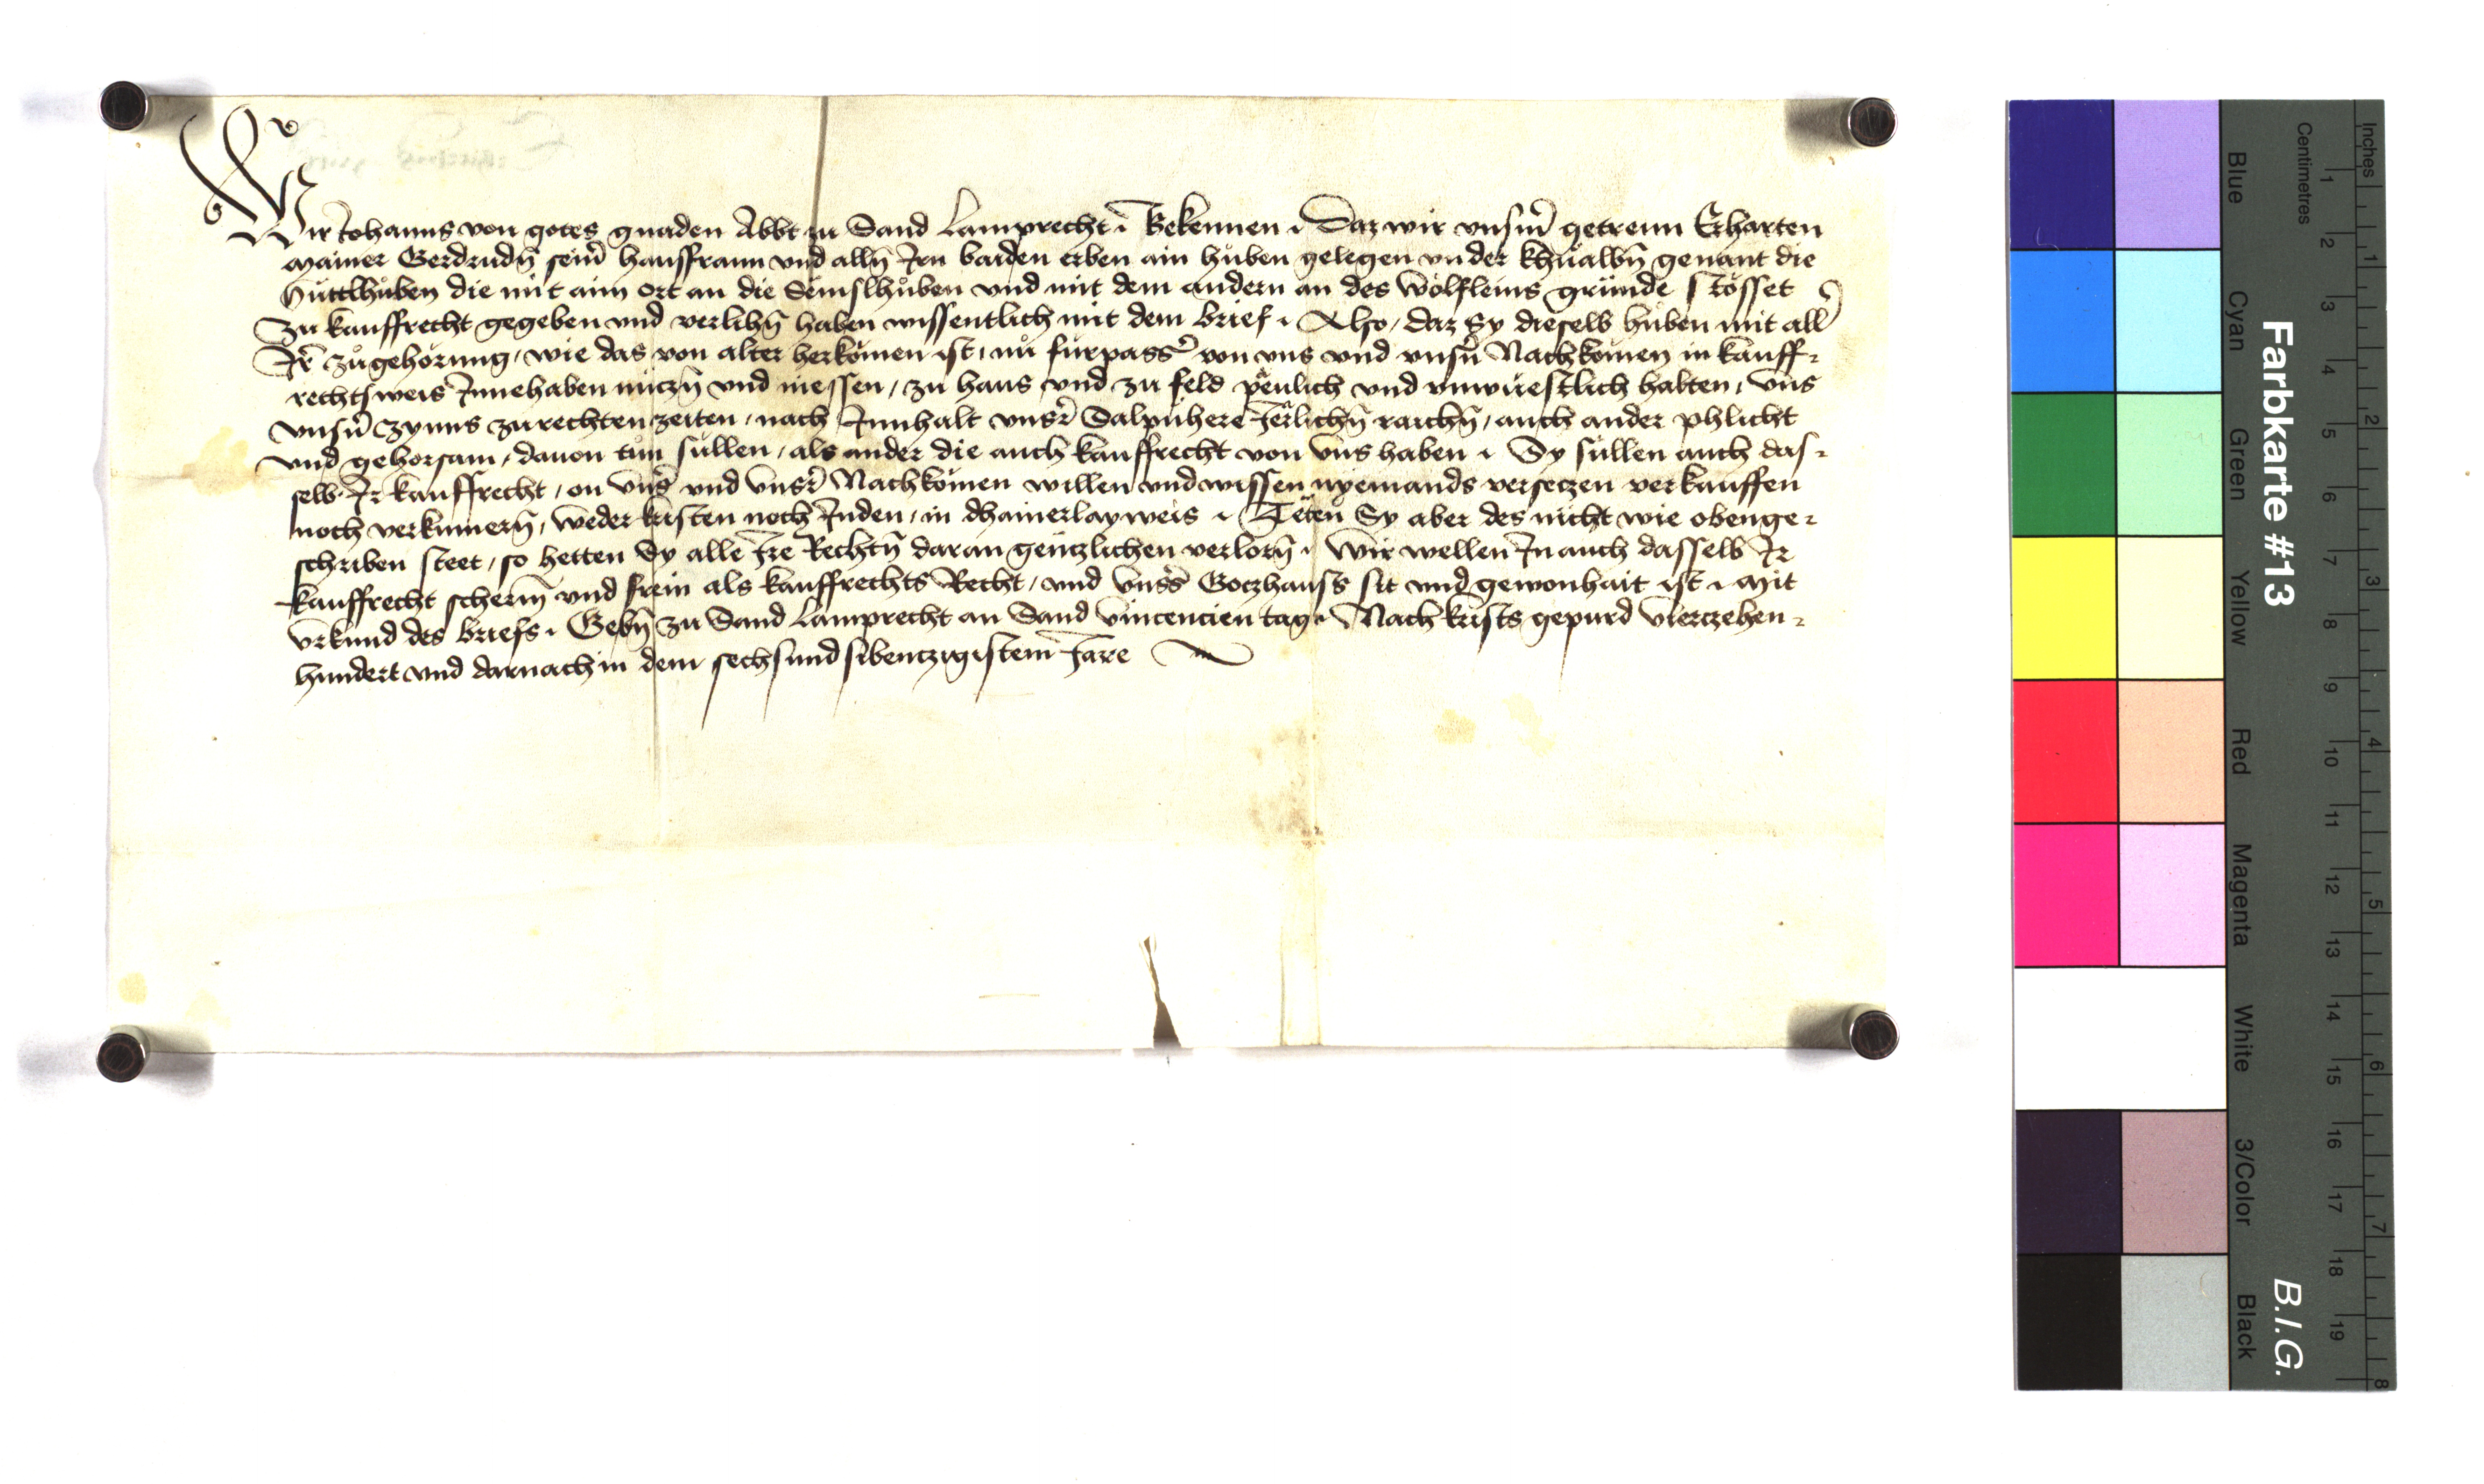 Wir Johanns von gotes gnaden Abbt zu Sand Lamprecht · Bekennen · Daz wir vnserm̄ getrewn Erharten
Mainer Gerdrudn̄ seinr̄ hausfrawn vnd alln̄ Jrn baiden erben ain hůben gelegen vnder genant die
Hüttlhůben die mit aim ort an die Semslhůben vnd mit dem andern an des Wölfleins gründe stösset
Zu kauffrecht gegeben vnd verlihn̄ haben wissentlich mit dem brief · Also, daz Sy dieselb hůben mit all
Jr̄ zůgehörung, wie das von alter herkömen ist, nů fürpass von vns vnd vnsn̄ Nachkömen in kauff⸗
rechts weis Jnnehaben nuczn̄ vnd niessen, zu haus vnd zu feld pewlich vnd vnwüestlich halten, vns
vnsn̄ Zynns zu rechten zeiten, nach Jnnhalt vnsr̄ Salpüher Jerlichn̄ raichn̄, auch ander phlicht
vnd gehorsam, dauon tůn süllen, als ander die auch kauffrecht von vns haben · Sy süllen auch das⸗
selb Jr kauffrecht, on vnsr̄ vnd vnsr̄ Nachkömen willen vnd wissen nyemands versetzen verkauffen
noch verkümern̄, weder kristen noch Juden, in dhainerlay weis · Teten Sy aber des nicht wie obenge⸗
schriben steet, so hetten Sy alle Jre Rechtn̄ daran genczlichen verlorn̄ · Wir wellen Jn auch dasselb Jr
kauffrecht scherm̄ vnd frein als kauffrechts Recht, vnd vnsrs Goczhauss sit vnd gewonhait ist · Mit
vrkund des briefs · Gebn̄ zu Sand Lamprecht an Sand Vincencien tag · Nach krists gepurd vierczehen⸗
hundert vnd darnach in dem sechsundsibenczigistem Jare
Farbkarte #13
B.I.G.
Inches
Centimetres
1 2 3 4 5 6 7 8
1 2 3 4 5 6 7 8 9 10 11 12 13 14 15 16 17 18 19
Blue
Cyan
Green
Yellow
Red
Magenta
White
3/Color
Black